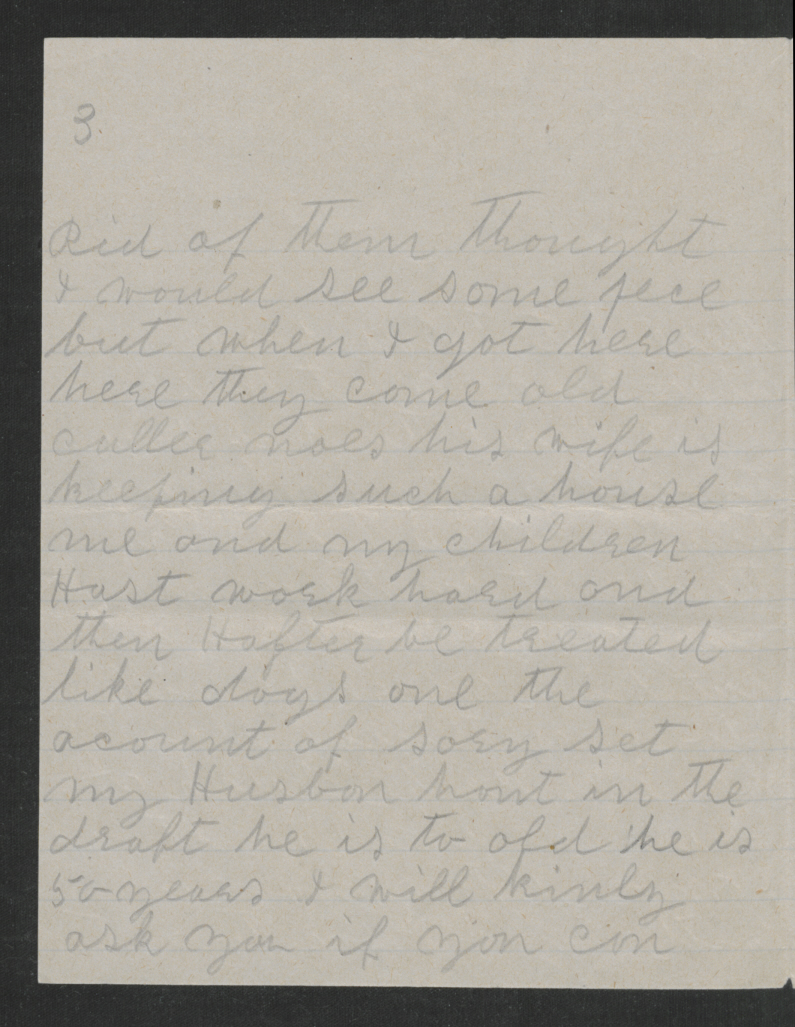 3.
Rid of them thought
I would see some pece
but when I got here
here they come old
culler noes his wife is
keeping such a house
me and my children
Hast work hard and
then Hafter be treated
like dogs one the
acount of sory set
my Husbon hont in the
draft he is to old he is
50 years I will kinly
ask you if you can